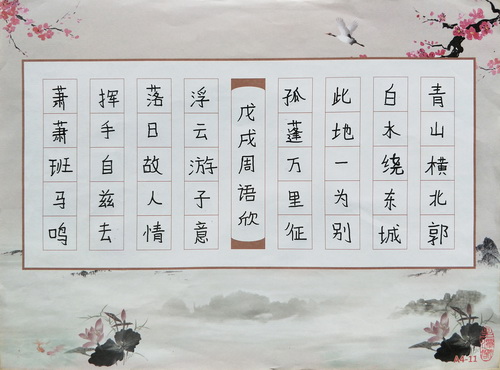 青山横北郭
白水绕东城
此地一为别
孤蓬万里征
戊戌周语欣
浮云游子意
落日故人情
挥手自兹去
萧萧班马鸣
A4-11